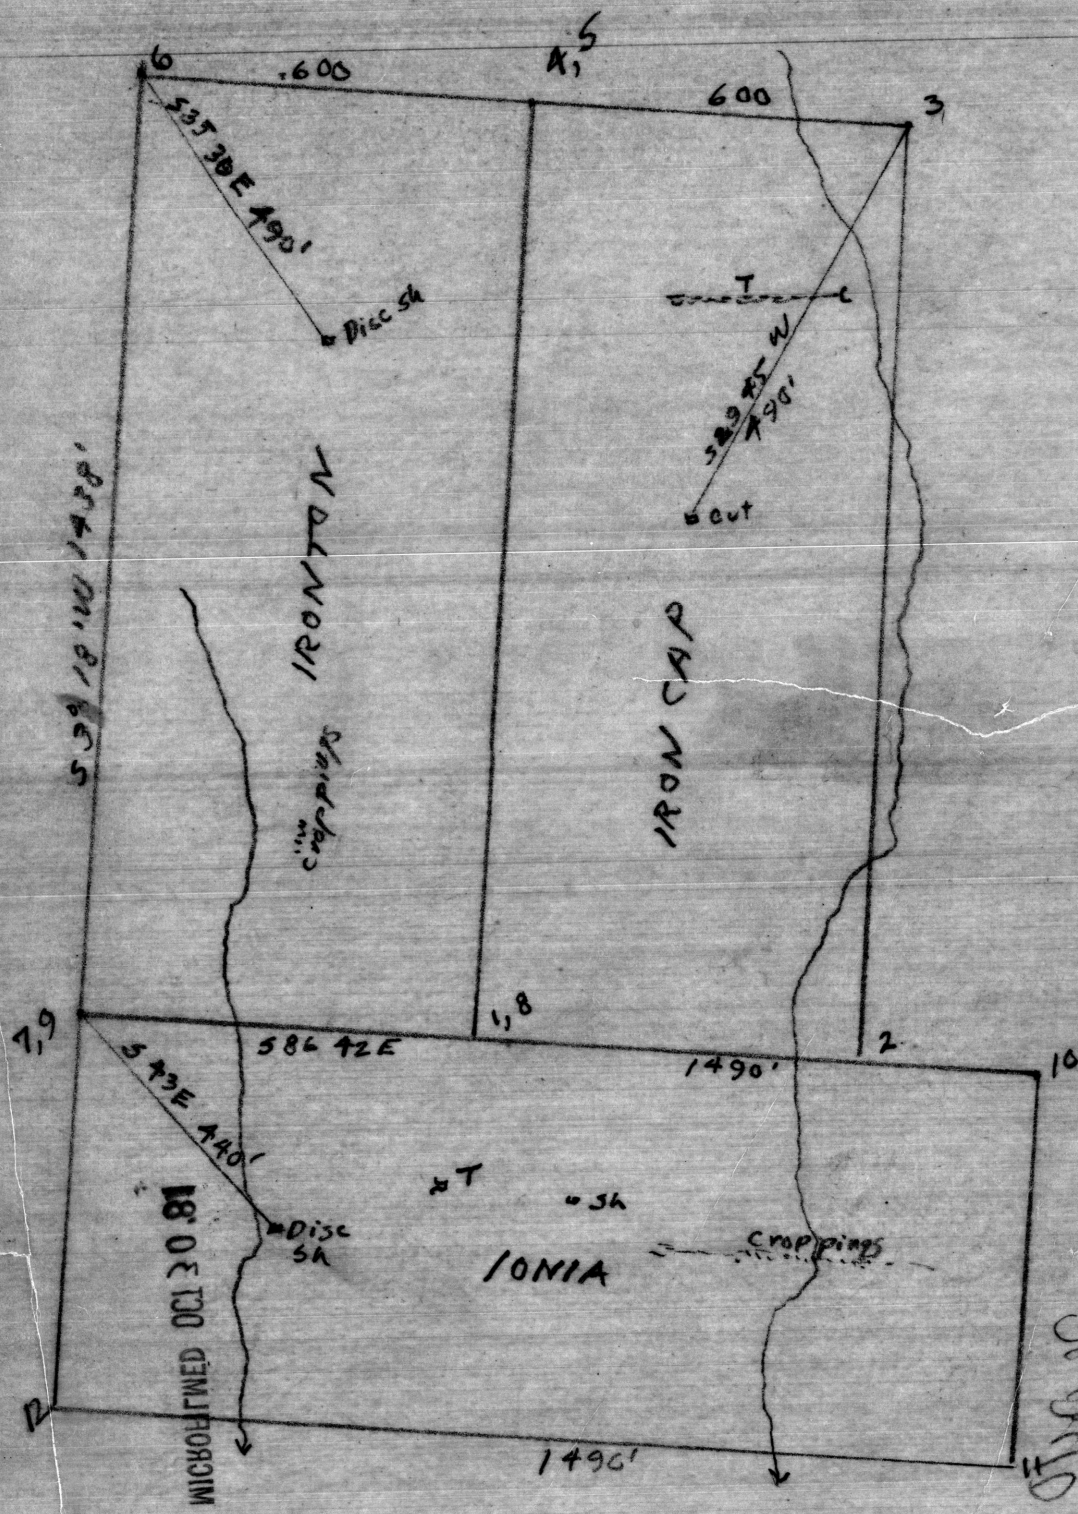 6
.600
4, 5
600
3
S35 30E 490'
Disc Sh
T
S29 45 W
490'
cut
S 3° 18' W 1438'
IRONTON
croppings
IRON CAP
7,9
S86 42E
1,8
1490'
2
10
S 43E 440'
T
Sh
Disc
Sh
croppings
IONIA
MICROFILMED OCT 30.81
12
1490'
11